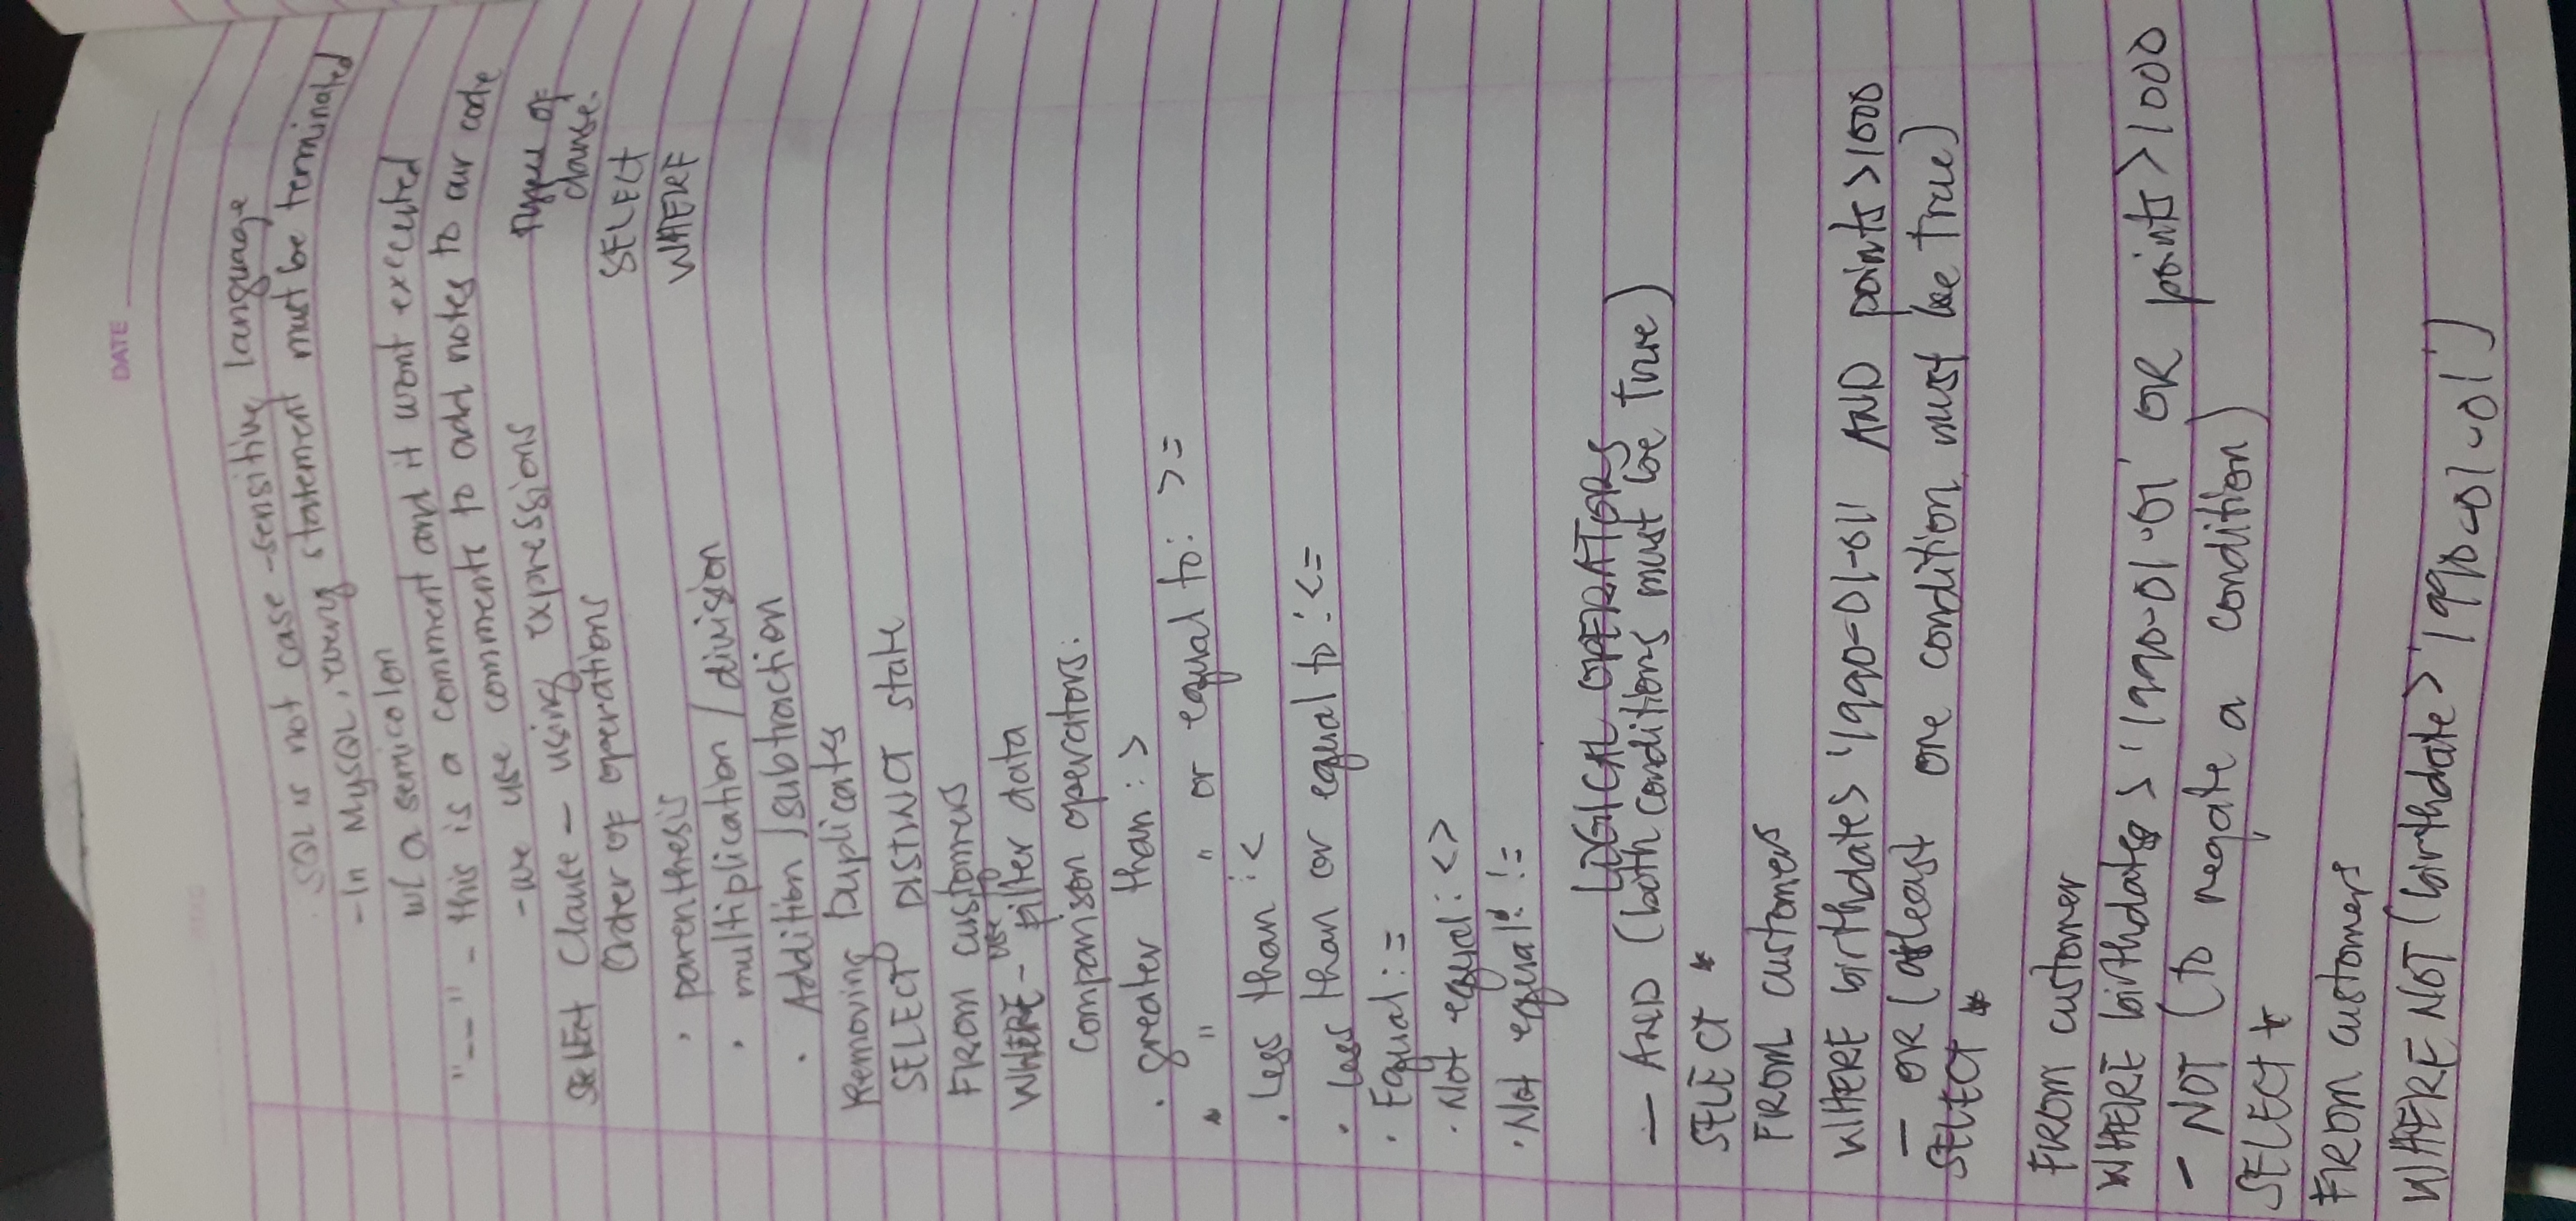 DATE
SQL is not case-sensitive language
- In MySQL, every statement must be terminated
w/ a semicolon
"--" - this is a comment and it wont executed
- we use comments to add notes to our code
SELECT Clause - using expressions
Types of
clause:
Order of operations
SELECT
• parenthesis
WHERE
• multiplication / division
• Addition / subtraction
Removing Duplicates
SELECT DISTINCT state
FROM customers
WHERE - use to filter data
Comparison operators:
• greater than : >
• " " or equal to: >=
• Less than : <
• Less than or equal to : <=
• Equal : =
• Not equal : <>
• Not equal: !=
LOGICAL OPERATORS
- AND (both conditions must be True)
SELECT *
FROM customers
WHERE birthdate > '1990-01-01' AND points > 1000
- OR (atleast one condition must be True)
SELECT *
FROM customer
WHERE birthdate > '1990-01-01' OR points > 1000
- NOT (to negate a condition)
SELECT *
FROM customers
WHERE NOT (birthdate > '1990-01-01')